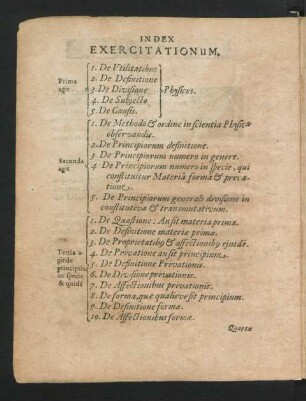 INDEX
EXERCITATIONUM.
Prima
agit
1. De Vtilitatibus
2. De Definitione
3. De Divisione
4. De Subjecto
5. De Causis.
Physices.
Secunda
agit
1. De Methodo & ordine in scientia Physica
observandis.
2. De Principiorum definitione.
3. De Principiorum numero in genere.
4. De Principiorum numero in specie, qui
constituitur Materia forma & priva-
tione.
5. De Principiorum generali divisione in
constitutiva & transmutativum.
Tertia a-
git de
principiis
in specie
& quidē
1. De Quæstione: An sit materia prima.
2. De Definitione materiæ primæ.
3. De Proprietatibꝰ & affectionibꝰ ejusdē.
4. De Privatione an sit principium.
5. De Definitione Privationis.
6. De Divisione privationis.
7. De Affectionibus privationis.
8. De forma, quæ qualisve sit principium.
9. De Definitione formæ.
10. De Affectionibus formæ.
Quarta